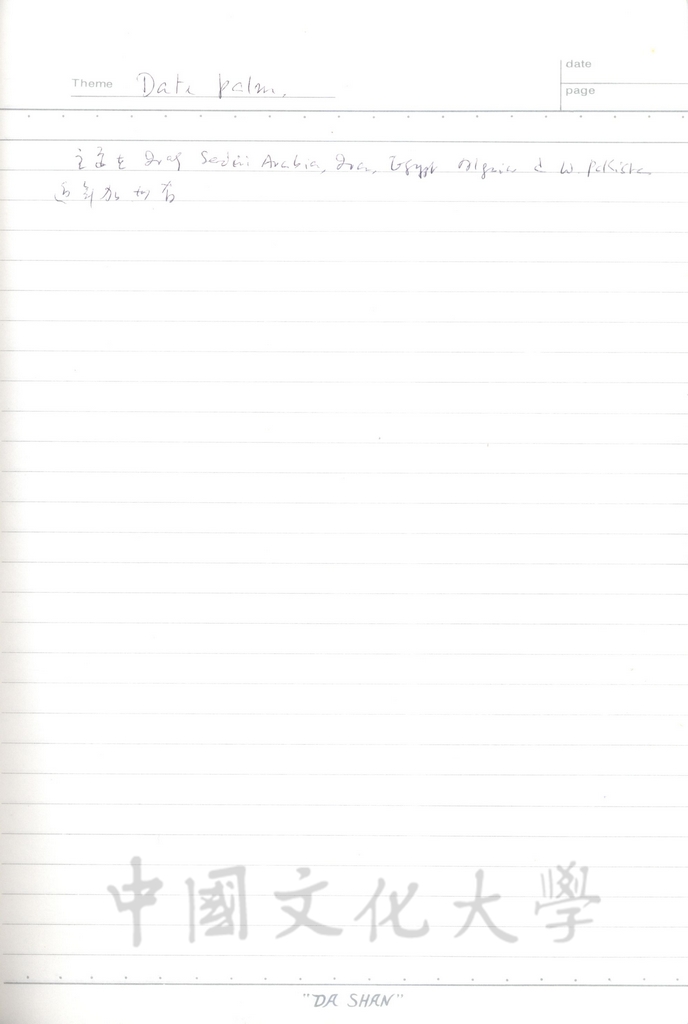 Theme Date palm.
date
page
主產在 Iraq Saudi Arabia, Iran, Egypt Algeria 之 W. Pakistan
中國文化大學
"DA SHAN"